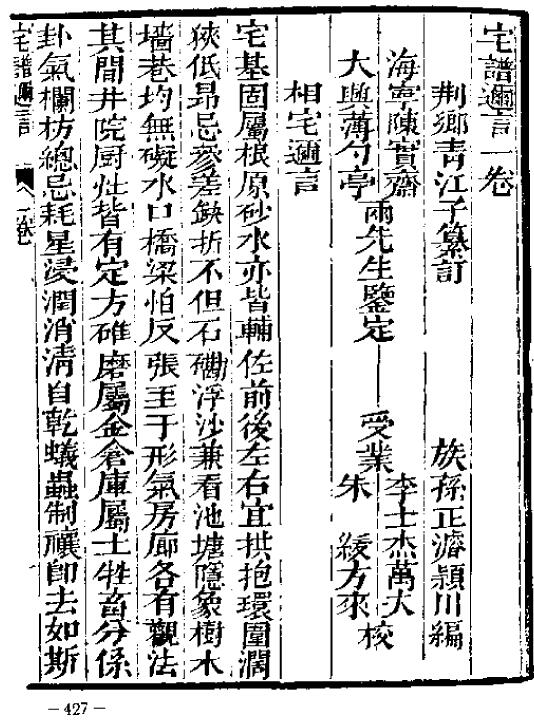 宅譜邇言一卷
荆鄉青江子纂訂　族孫正濬頴川編
海寧陳實齋
大興薄勺亭
兩先生鑒定　受業
李士杰萬大
朱　綬方來
校
相宅邇言
宅基固屬根原砂水亦皆輔佐前後左右宜拱抱環圍濶
狹低昂忌參差缺折不但石磡浮沙兼看池塘隱象樹木
墻巷均無礙水口橋梁怕反張至于形氣房廊各有觀法
其間井院厨灶皆有定方碓磨屬金倉庫屬土牲畜分係
卦氣欄枋總忌耗星浸潤消清自乾蟻蟲制禳卽去如斯
宅譜邇言　一卷
—427—